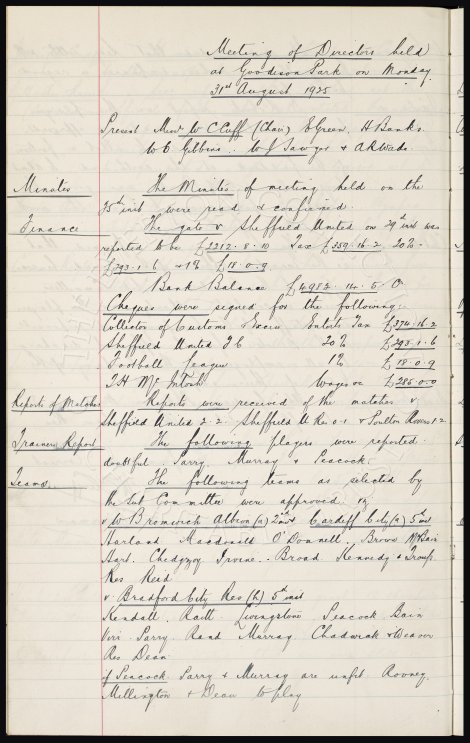 Meeting of Directors held
at Goodison Park on Monday
31st August 1925
Present Messrs W C Cuff (Chair) E Green, H Banks
W C Gibbins, W J Sawyer & A R Wade.
Minutes
The Minutes of meeting held on the
25th inst were read & confirmed.
Finance
The gate v Sheffield United on 29th inst was
reported to be £2212. 8. 10 Tax £359. 16. 2, 20%
£293. 1. 6 & 1% £18. 0. 9.
Bank Balance £4982. 14. 5 Cr
Cheques were signed for the following:
Collector of Customs & Excise Enterts Tax £374. 16. 2
Sheffield United FC 20% £293. 1. 6
Football League 1% £18. 0. 9
T H McIntosh Wages &c £286. 0. 0
Reports of Matches
Reports were received of the matches v
Sheffield United 2-2. Sheffield U Res 0-1 & Poulton Rovers 1-2
Trainers Report
The following players were reported
doubtful Parry, Murray & Peacock.
Teams
The following teams as selected by
the Sub Committee were approved viz
v W Bromwich Albion (a) 2nd inst & Cardiff City (a) 5th inst
Harland Macdonald O'Donnell, Brown McBain
Hart, Chedgzoy Irvine, Broad Kennedy & Troup.
Res Reid
v Bradford City Res (h) 5th inst
Kendall. Raitt Livingstone Peacock Bain
Virr. Parry Rand Murray Chadwick & Weaver
Res Dean
If Peacock, Parry & Murray are unfit Rooney,
Millington & Dean to play